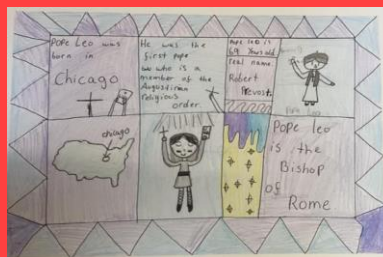 Pope Leo was
born in
Chicago
He was the
first pope
who is a
member of the
Augustinian
religious
order.
Pope Leo is
69 years old
real name
Robert
Prevost.
chicago
Pope leo
is the
Bishop
of
Rome